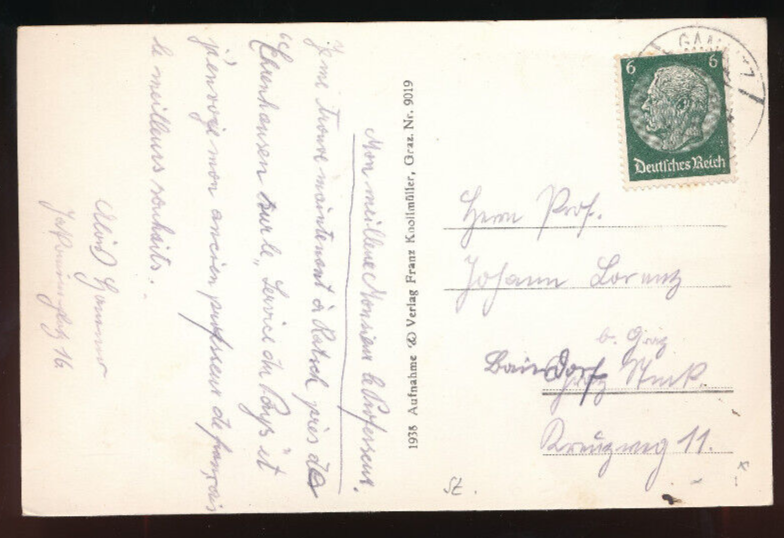 Mon meilleur Monsieur le Professeur.
Je me trouve maintenant à Ratsch près de
Ehrenhausen sur le „Service du Pays" et
j'envoye mon ancien professeur de français
le meilleurs souhaits.
Jakominiplatz 16
1938 Aufnahme Verlag Franz Knollmüller, Graz. Nr. 9019
6 6
Deutsches Reich
Herrn Prof.
Johann Lorenz
b. Graz
Graz
Kreuzweg 11.
St.